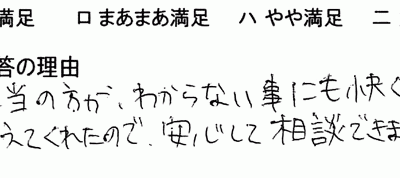 満足 ロ まあまあ満足 ハ やや満足 ニ
答の理由
当の方が、わからない事にも快く
えてくれたので、安心して相談できま